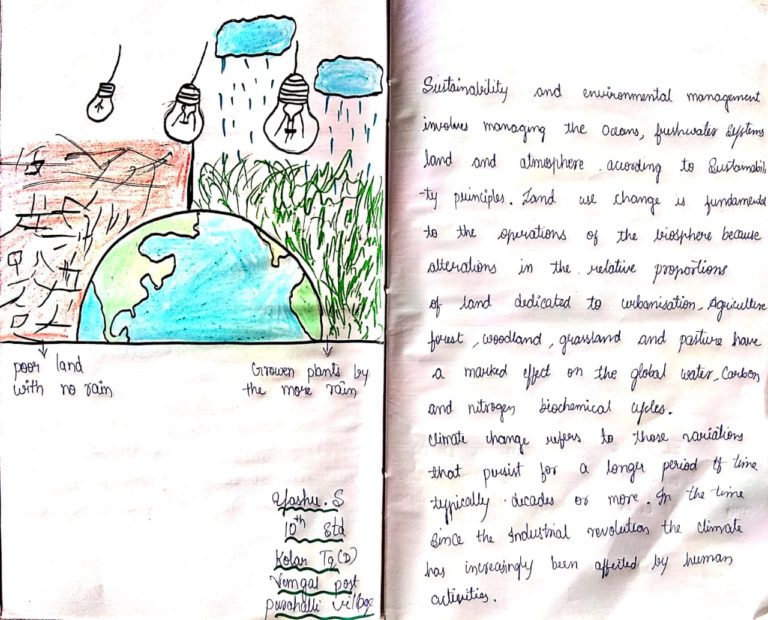 poor land
with no rain
Growen plants by
the more rain
Yashu. S
10th Std
Kolar Tq(D)
Vemgal post
purahalli village
Sustainability and environmental management
involves managing the Oceans, freshwater systems
land and atmosphere. according to Sustainabili
-ty principles. Land use change is fundamental
to the operations of the biosphere because
alterations in the relative proportions
of land dedicated to urbanisation, Agriculture
forest, woodland, grassland and pasture have
a marked effect on the global water, Carbon
and nitrogen biochemical cycles.
climate change refers to those variations
that persist for a longer period of time
typically decades or more. In the time
since the Industrial revolution the climate
has increasingly been affected by human
activities.